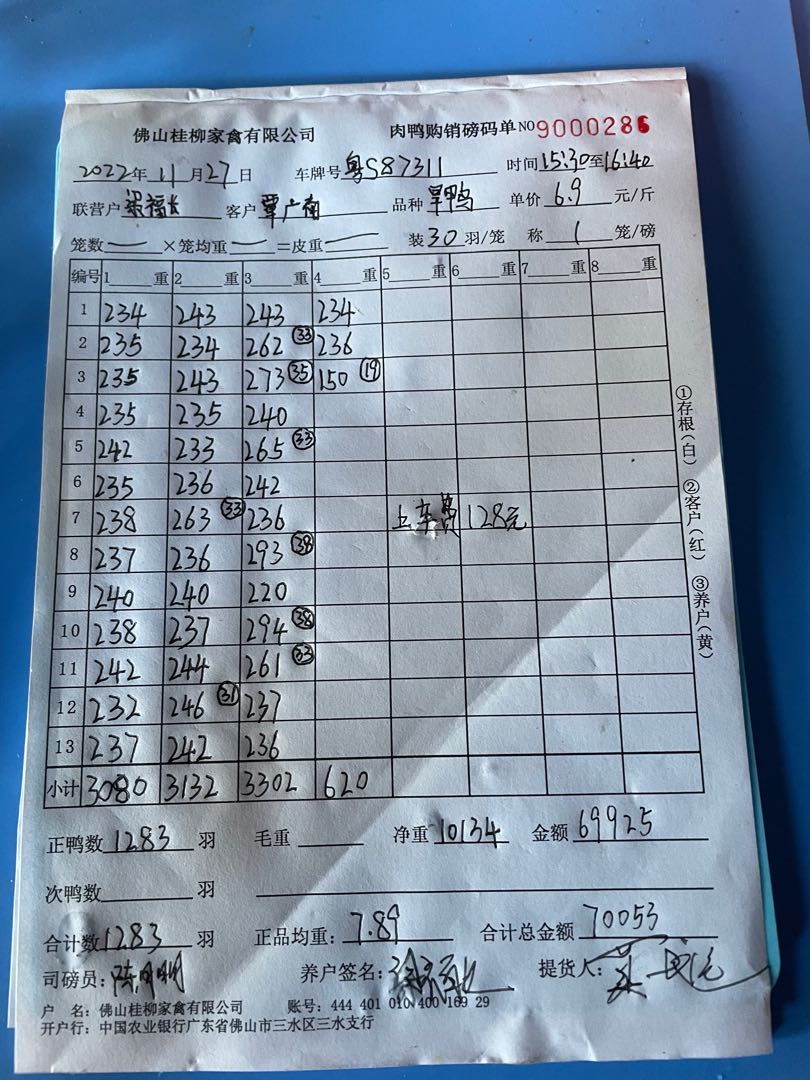 佛山桂柳家禽有限公司 肉鸭购销磅码单 NO 9000286
2022年 11月 27日 车牌号 粤S87311 时间 15:30至16:40
联营户 梁福长 客户 覃广南 品种 旱鸭 单价 6.9 元/斤
笼数 一 ×笼均重 一 =皮重 一 装 30 羽/笼 称 1 笼/磅
编号 1 重 2 重 3 重 4 重 5 重 6 重 7 重 8 重
1 234 243 243 234
2 235 234 262 33 236
3 235 243 273 35 150 19
4 235 235 240
5 242 233 265 33
6 235 236 242
7 238 263 33 236 上车费 128元
8 237 236 293 38
9 240 240 220
10 238 237 294 38
11 242 244 261 33
12 232 246 31 237
13 237 242 236
小计 3080 3132 3302 620
①存根(白) ②客户(红) ③养户(黄)
正鸭数 1283 羽 毛重 净重 10134 金额 69925
次鸭数 羽
合计数 1283 羽 正品均重: 7.89 合计总金额 70053
司磅员: 养户签名: 提货人:
户 名: 佛山桂柳家禽有限公司 账号: 444 401 010 400 169 29
开户行: 中国农业银行广东省佛山市三水区三水支行